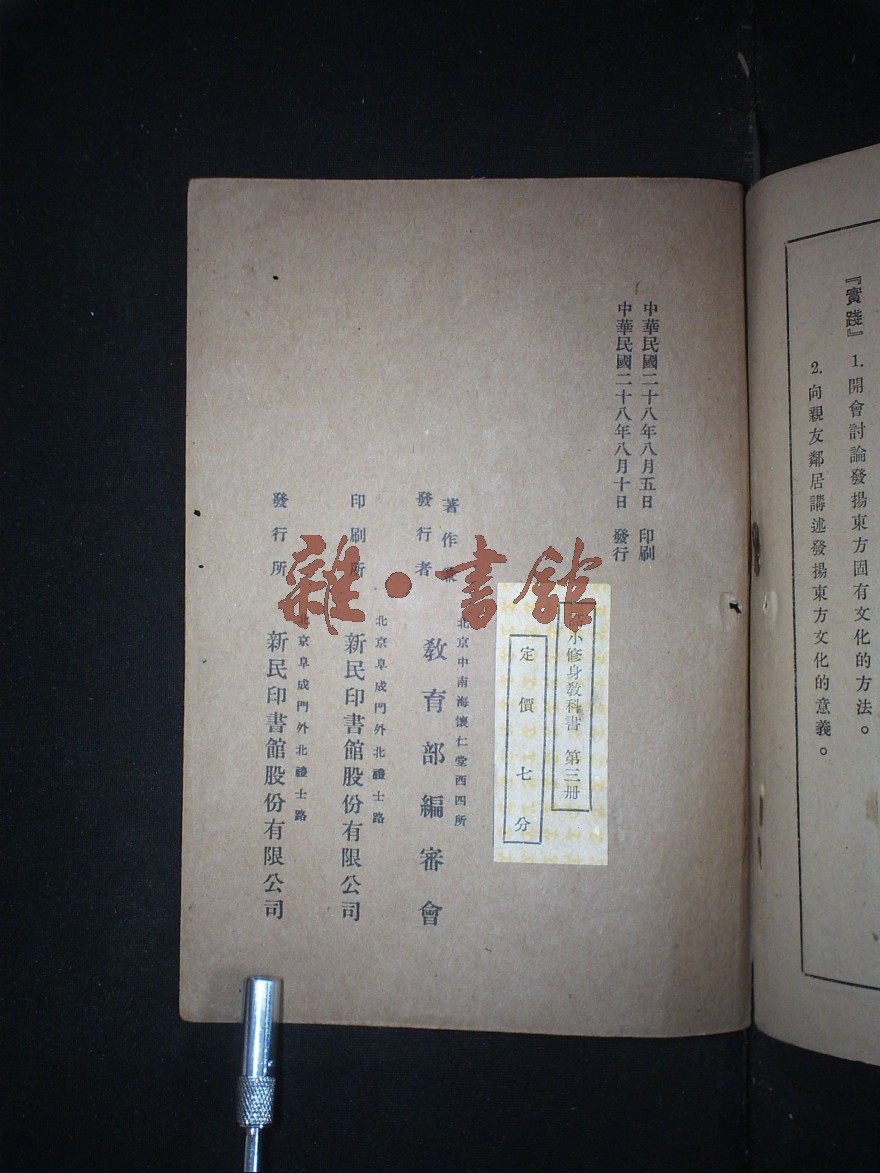 『實踐』 1. 開會討論發揚東方固有文化的方法。
2. 向親友鄰居講述發揚東方文化的意義。
中華民國二十八年八月五日 印刷
中華民國二十八年八月十日 發行
小修身教科書 第三册
定價七分
著作
發行者
北京中南海懷仁堂西四所
教育部編審會
印刷所
北京阜成門外北禮士路
新民印書館股份有限公司
發行所
北京阜成門外北禮士路
新民印書館股份有限公司
雜·書館